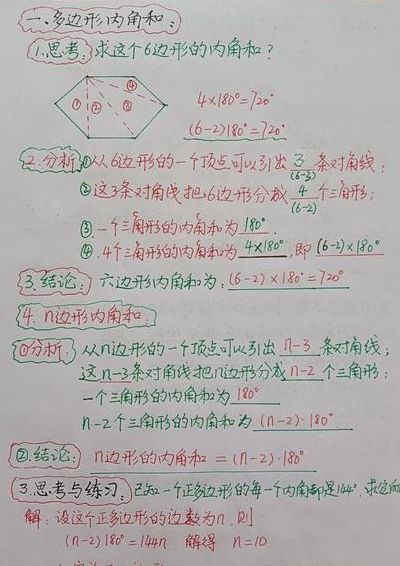 一、多边形内角和:
1.思考: 求这个6边形的内角和?
① ② ③ ④
4×180°=720°
(6-2)180°=720°
2.分析 ①从6边形的一个顶点可以引出 3 条对角线;
(6-3)
②这3条对角线把6边形分成 4 个三角形;
(6-2)
③.一个三角形的内角和为 180°
④.4个三角形的内角和为 4×180°,即 (6-2)×180°
3.结论: 六边形内角和为:(6-2)×180°=720°
4. n边形内角和:
①分析: 从n边形的一个顶点可以引出 n-3 条对角线;
这 n-3条对角线把n边形分成 n-2 个三角形;
一个三角形的内角和为 180°
n-2个三角形的内角和为 (n-2)·180°
②.结论: n边形的内角和 =(n-2)·180°
3.思考与练习: 已知一个正多边形的每一个内角都是144°,求它的
解:设这个正多边形的边数为n,则
(n-2)180°=144n 解得 n=10